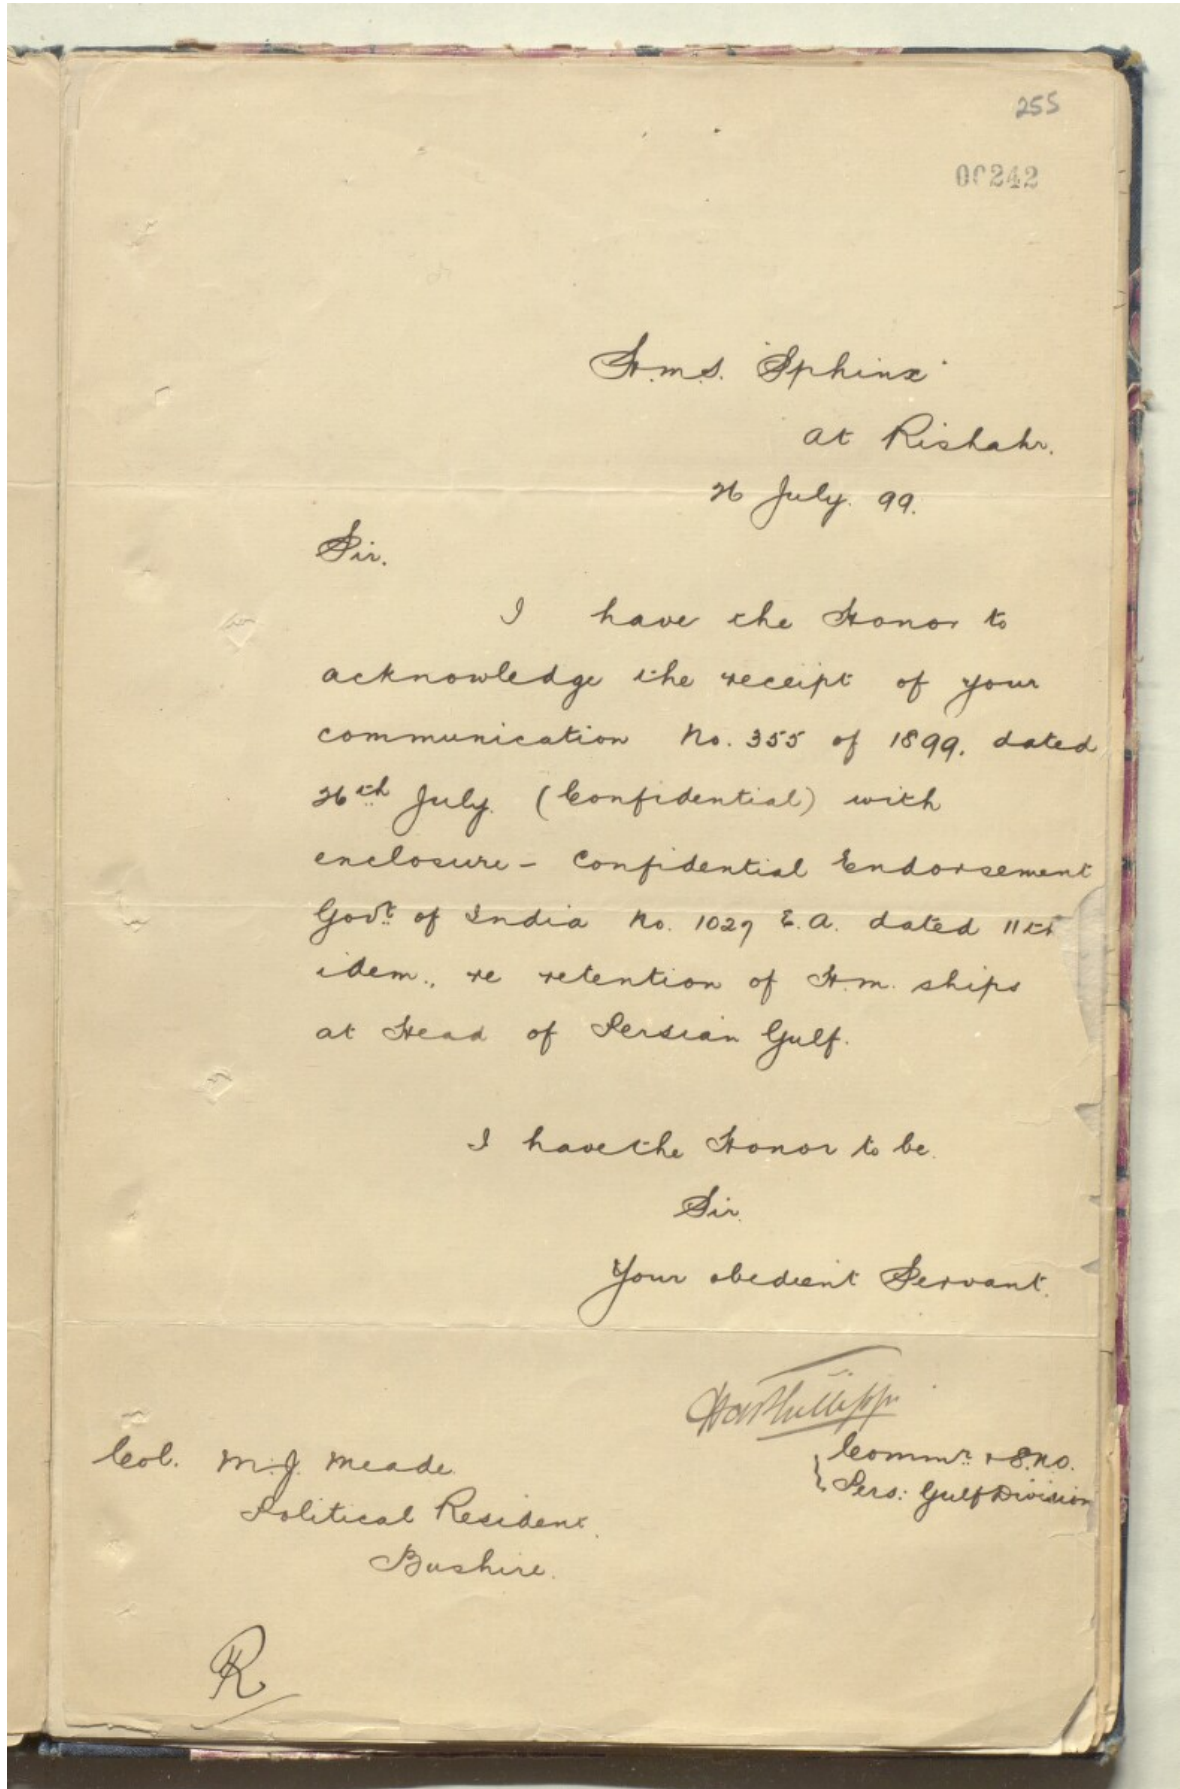 255
00242
H.M.S. "Sphinx"
at Rishahr.
26 July. 99.
Sir.
I have the Honor to
acknowledge the receipt of your
communication No. 355 of 1899. dated
26th July. (Confidential) with
enclosure - Confidential Endorsement
Govt. of India No. 1027 E.A. dated 11th
idem., re retention of H.M. ships
at Head of Persian Gulf.
I have the Honor to be.
Sir.
Your obedient Servant.
Commr. & S.N.O.
Pers: Gulf Division
Col. M.J. Meade.
Political Resident.
Bushire.
R